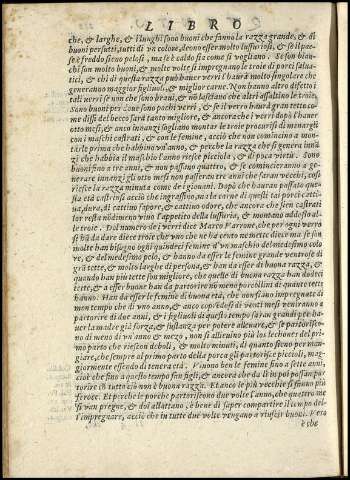 LIBRO
che, & larghe, & i luoghi sono buoni che fanno la razza grande, & di
buoni persutti, tutti di vn colore, deono esser molto lussuriosi, & se il pae-
se è freddo sieno pelosi, ma se è caldo sia come si vogliano. Se son bian-
chi son molto buoni, & molte volte si impregnano le troie di porci saluatici
tici, & chi di questa razza può hauer verri l'haurà molto singolare che
generano maggior figliuoli, & miglior carne. Non hanno altro difetto i
tali verri se non che son braui, & nõ lasciano che altri assaltino le troie.
Sono buoni per due sono pochi verri, & se il verro haurà gran tette co-
me dissi del becco sarà tanto migliore, & ancora che i verri dopò l'hauer
otto mesi, & anco innanzi sogliano montar le troie procurisi di mandar
con i maschi castrati, & con le femine, acciò che non comincino a mon-
tarle prima che habbino vn'anno, & perche la razza che si genera innã
zi che habbia il maschio l'anno riesce picciola, & di poca virtù. Sono
buoni fino a tre anni, e non passano quattro, & se comincieranno a ge-
nerare innanzi gli otto mesi non passeran tre anni che saran vecchi, cosi
riesce la razza minuta come de i giouani. Dopò che hauran passato que-
sta età castrensi acciò che ingrassino, ma le carne di questi tai porci è catti-
ua, dura, di cattiuo sapore, & cattiuo odore, che ancora che sien castrati
lor resta nõdimeno viuo l'appetito della lussuria, & montano addosso al-
le troie. Del numero dei verri dice Marco Varrone, che per ogni verro
si hà da dare diece troie vno che ne hà cento ne mette diece ma se son
molte han bisogno ogni quindeci femine d'vn maschio del medesimo colo
re, & del medesimo pelo, & hanno da essere le femine grande ventrose di
grã tette, & molto larghe di persona, & han da esser di buona razza, &
quando han piu tette son migliore, che quelle di buona razza han dodeci
tette, & a esser buone han da partorire nõ meno porcellini di quante tette
hanno. Han da esser le femine di buona età, che non siano impregnate di
men tempo che di vno anno, & anco coprẽdosi di venti mesi veniranno a
partorire di doe anni, & i figliuoli di questo tempo saran grandi per ha-
uer la madre già forza, & sustanza per potere allenare, & se partorissero
no di meno di vn'anno e mezo, non si alleuino piu los lechones del pri-
mo parto che riescon deboli, & molto minuti, di quanto sieno per man-
giare, che sempre al primo parto della porca gli partorisce piccioli, mag-
giormente essendo di tenera età. Viuono ben le femine fino a sette anni,
ciò è che fino a questo tempo fan figli, & ancora che da lì in poi possan par
torire cõ tutto ciò non è buona razza. Et anco le più vecchie si fanno piu
feroce. Et perche le porche partoriscono due volte l'anno, che quattro me
si van pregne, & doi allattano, è bene di saper compartire il tempo del-
l'impregnare, acciò che in tutte due volte vengano a riuscir buoni. Vero
è che